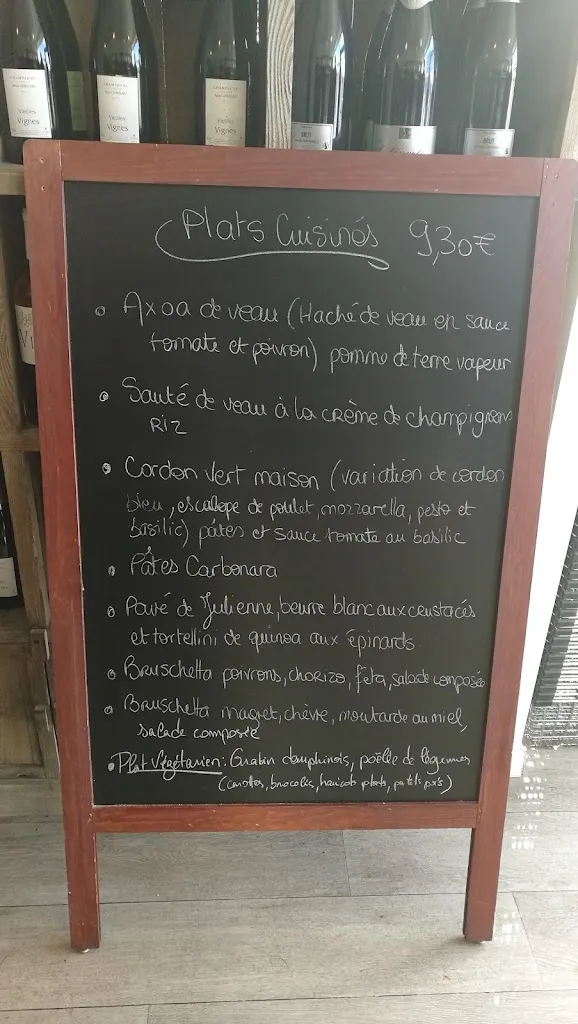 CHAMPAGNE
Vieilles
Vignes
CHAMPAGNE
Vieilles
Vignes
CHAMPAGNE
Vieilles
Vignes
BRUT
BRUT
Plats Cuisinés 9,30€
• Axoa de veau (Haché de veau en sauce
tomate et poivron) pomme de terre vapeur
• Sauté de veau à la crème de champignons
RIZ
• Cordon vert maison (variation de cordon
bleu, escalope de poulet, mozzarella, pesto et
basilic) pâtes et sauce tomate au basilic
• Pâtes Carbonara
• Pavé de Julienne, beurre blanc aux crustacés
et tortellini de quinoa aux épinards
• Bruschetta poivrons, chorizo, feta, salade composée
• Bruschetta magret, chèvre, moutarde au miel,
salade composée
• Plat Végétarien: Gratin dauphinois, poêlée de légumes
(carottes, brocolis, haricots plats, petits pois)